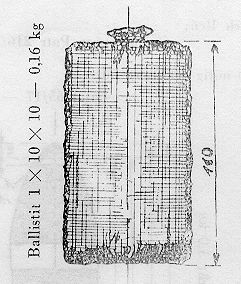 Ballistit 1 × 10 × 10 — 0,16 kg
180